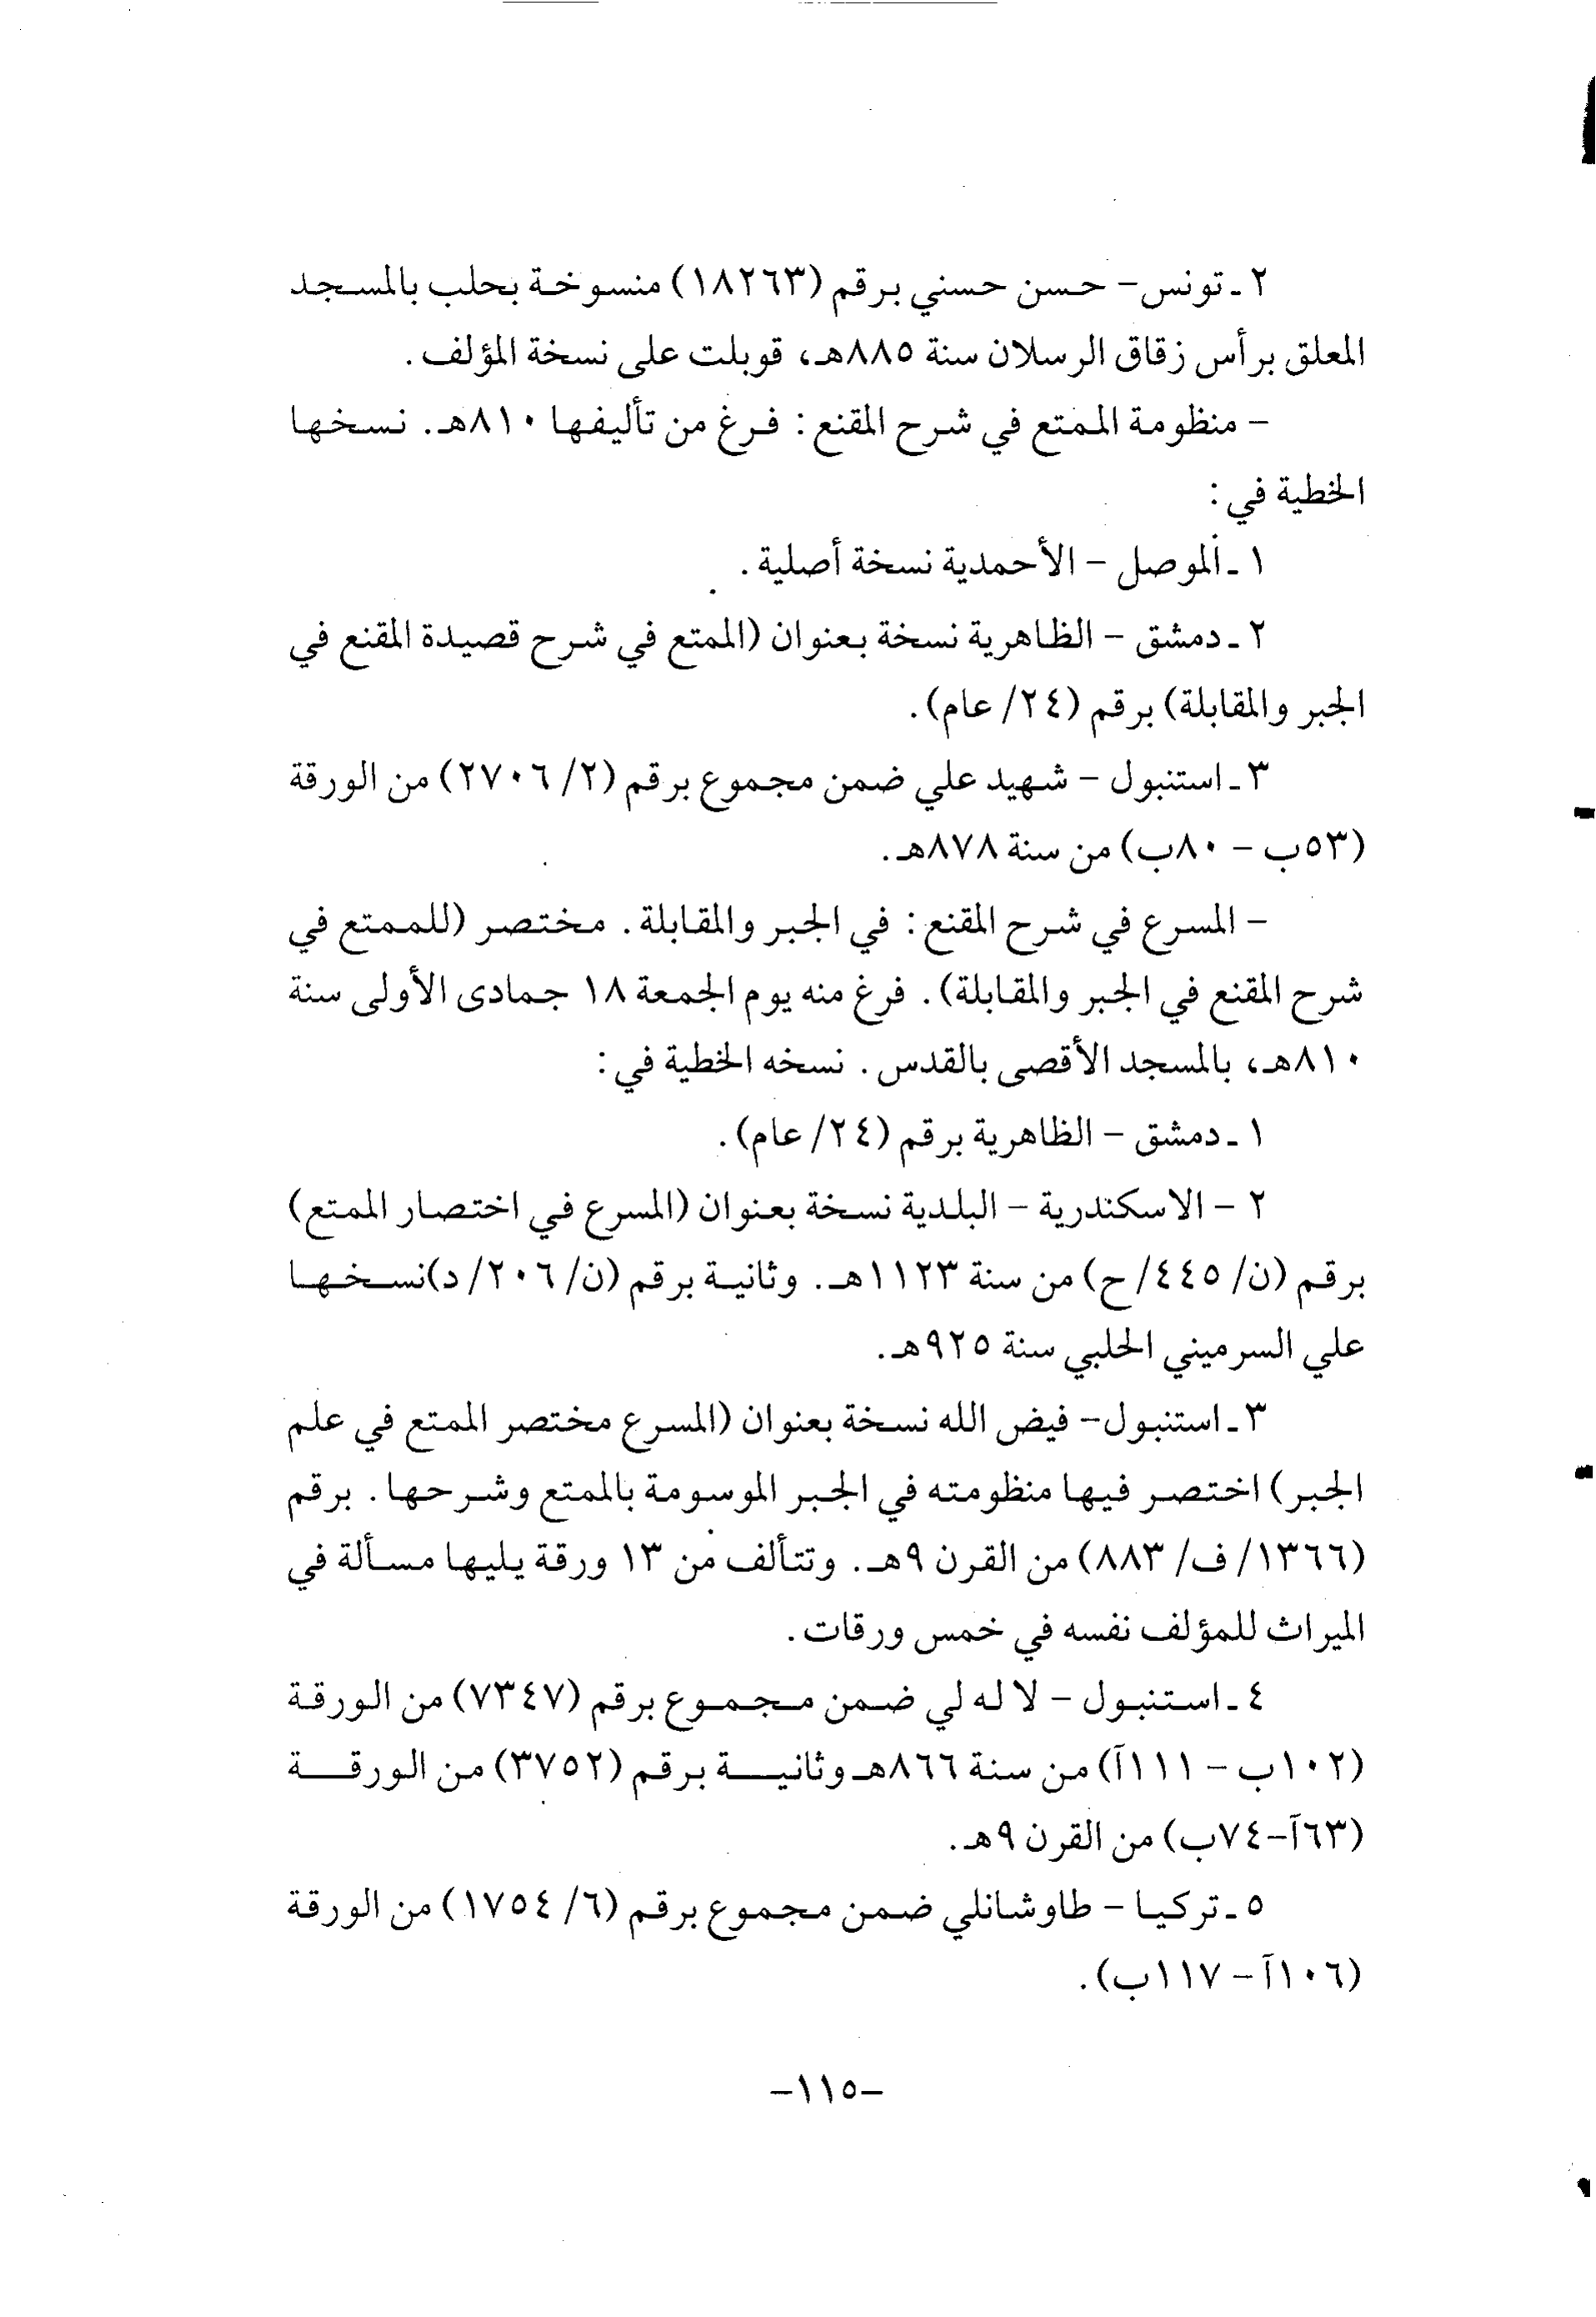 ٢ ـ تونس - حسن حسني برقم (١٨٢٦٣) منسوخة بحلب بالمسجد
المعلق برأس زقاق الرسلان سنة ٨٨٥هـ، قوبلت على نسخة المؤلف.
- منظومة الممتع في شرح المقنع: فرغ من تأليفها ٨١٠هـ. نسخها
الخطية في:
١ ـ الموصل - الأحمدية نسخة أصلية.
٢ ـ دمشق - الظاهرية نسخة بعنوان (الممتع في شرح قصيدة المقنع في
الجبر والمقابلة) برقم (٢٤/ عام).
٣ ـ استنبول - شهيد علي ضمن مجموع برقم (٢/ ٢٧٠٦) من الورقة
(٥٣ب - ٨٠ب) من سنة ٨٧٨هـ.
- المسرع في شرح المقنع: في الجبر والمقابلة. مختصر (للممتع في
شرح المقنع في الجبر والمقابلة). فرغ منه يوم الجمعة ١٨ جمادى الأولى سنة
٨١٠هـ، بالمسجد الأقصى بالقدس. نسخه الخطية في:
١ ـ دمشق - الظاهرية برقم (٢٤/ عام).
٢ - الاسكندرية - البلدية نسخة بعنوان (المسرع في اختصار الممتع)
برقم (ن/ ٤٤٥/ ح) من سنة ١١٢٣هـ. وثانية برقم (ن/ ٢٠٦/ د)نسخها
علي السرميني الحلبي سنة ٩٢٥هـ.
٣ ـ استنبول - فيض الله نسخة بعنوان (المسرع مختصر الممتع في علم
الجبر) اختصر فيها منظومته في الجبر الموسومة بالممتع وشرحها. برقم
(١٣٦٦/ ف/ ٨٨٣) من القرن ٩هـ. وتتألف من ١٣ ورقة يليها مسألة في
الميراث للمؤلف نفسه في خمس ورقات.
٤ ـ استنبول - لا له لي ضمن مجموع برقم (٧٣٤٧) من الورقة
(١٠٢ب - ١١١آ) من سنة ٨٦٦هـ وثانية برقم (٣٧٥٢) من الورقة
(٦٣آ-٧٤ب) من القرن ٩هـ.
٥ ـ تركيا - طاوشانلي ضمن مجموع برقم (٦/ ١٧٥٤) من الورقة
(١٠٦آ - ١١٧ب).
-١١٥-